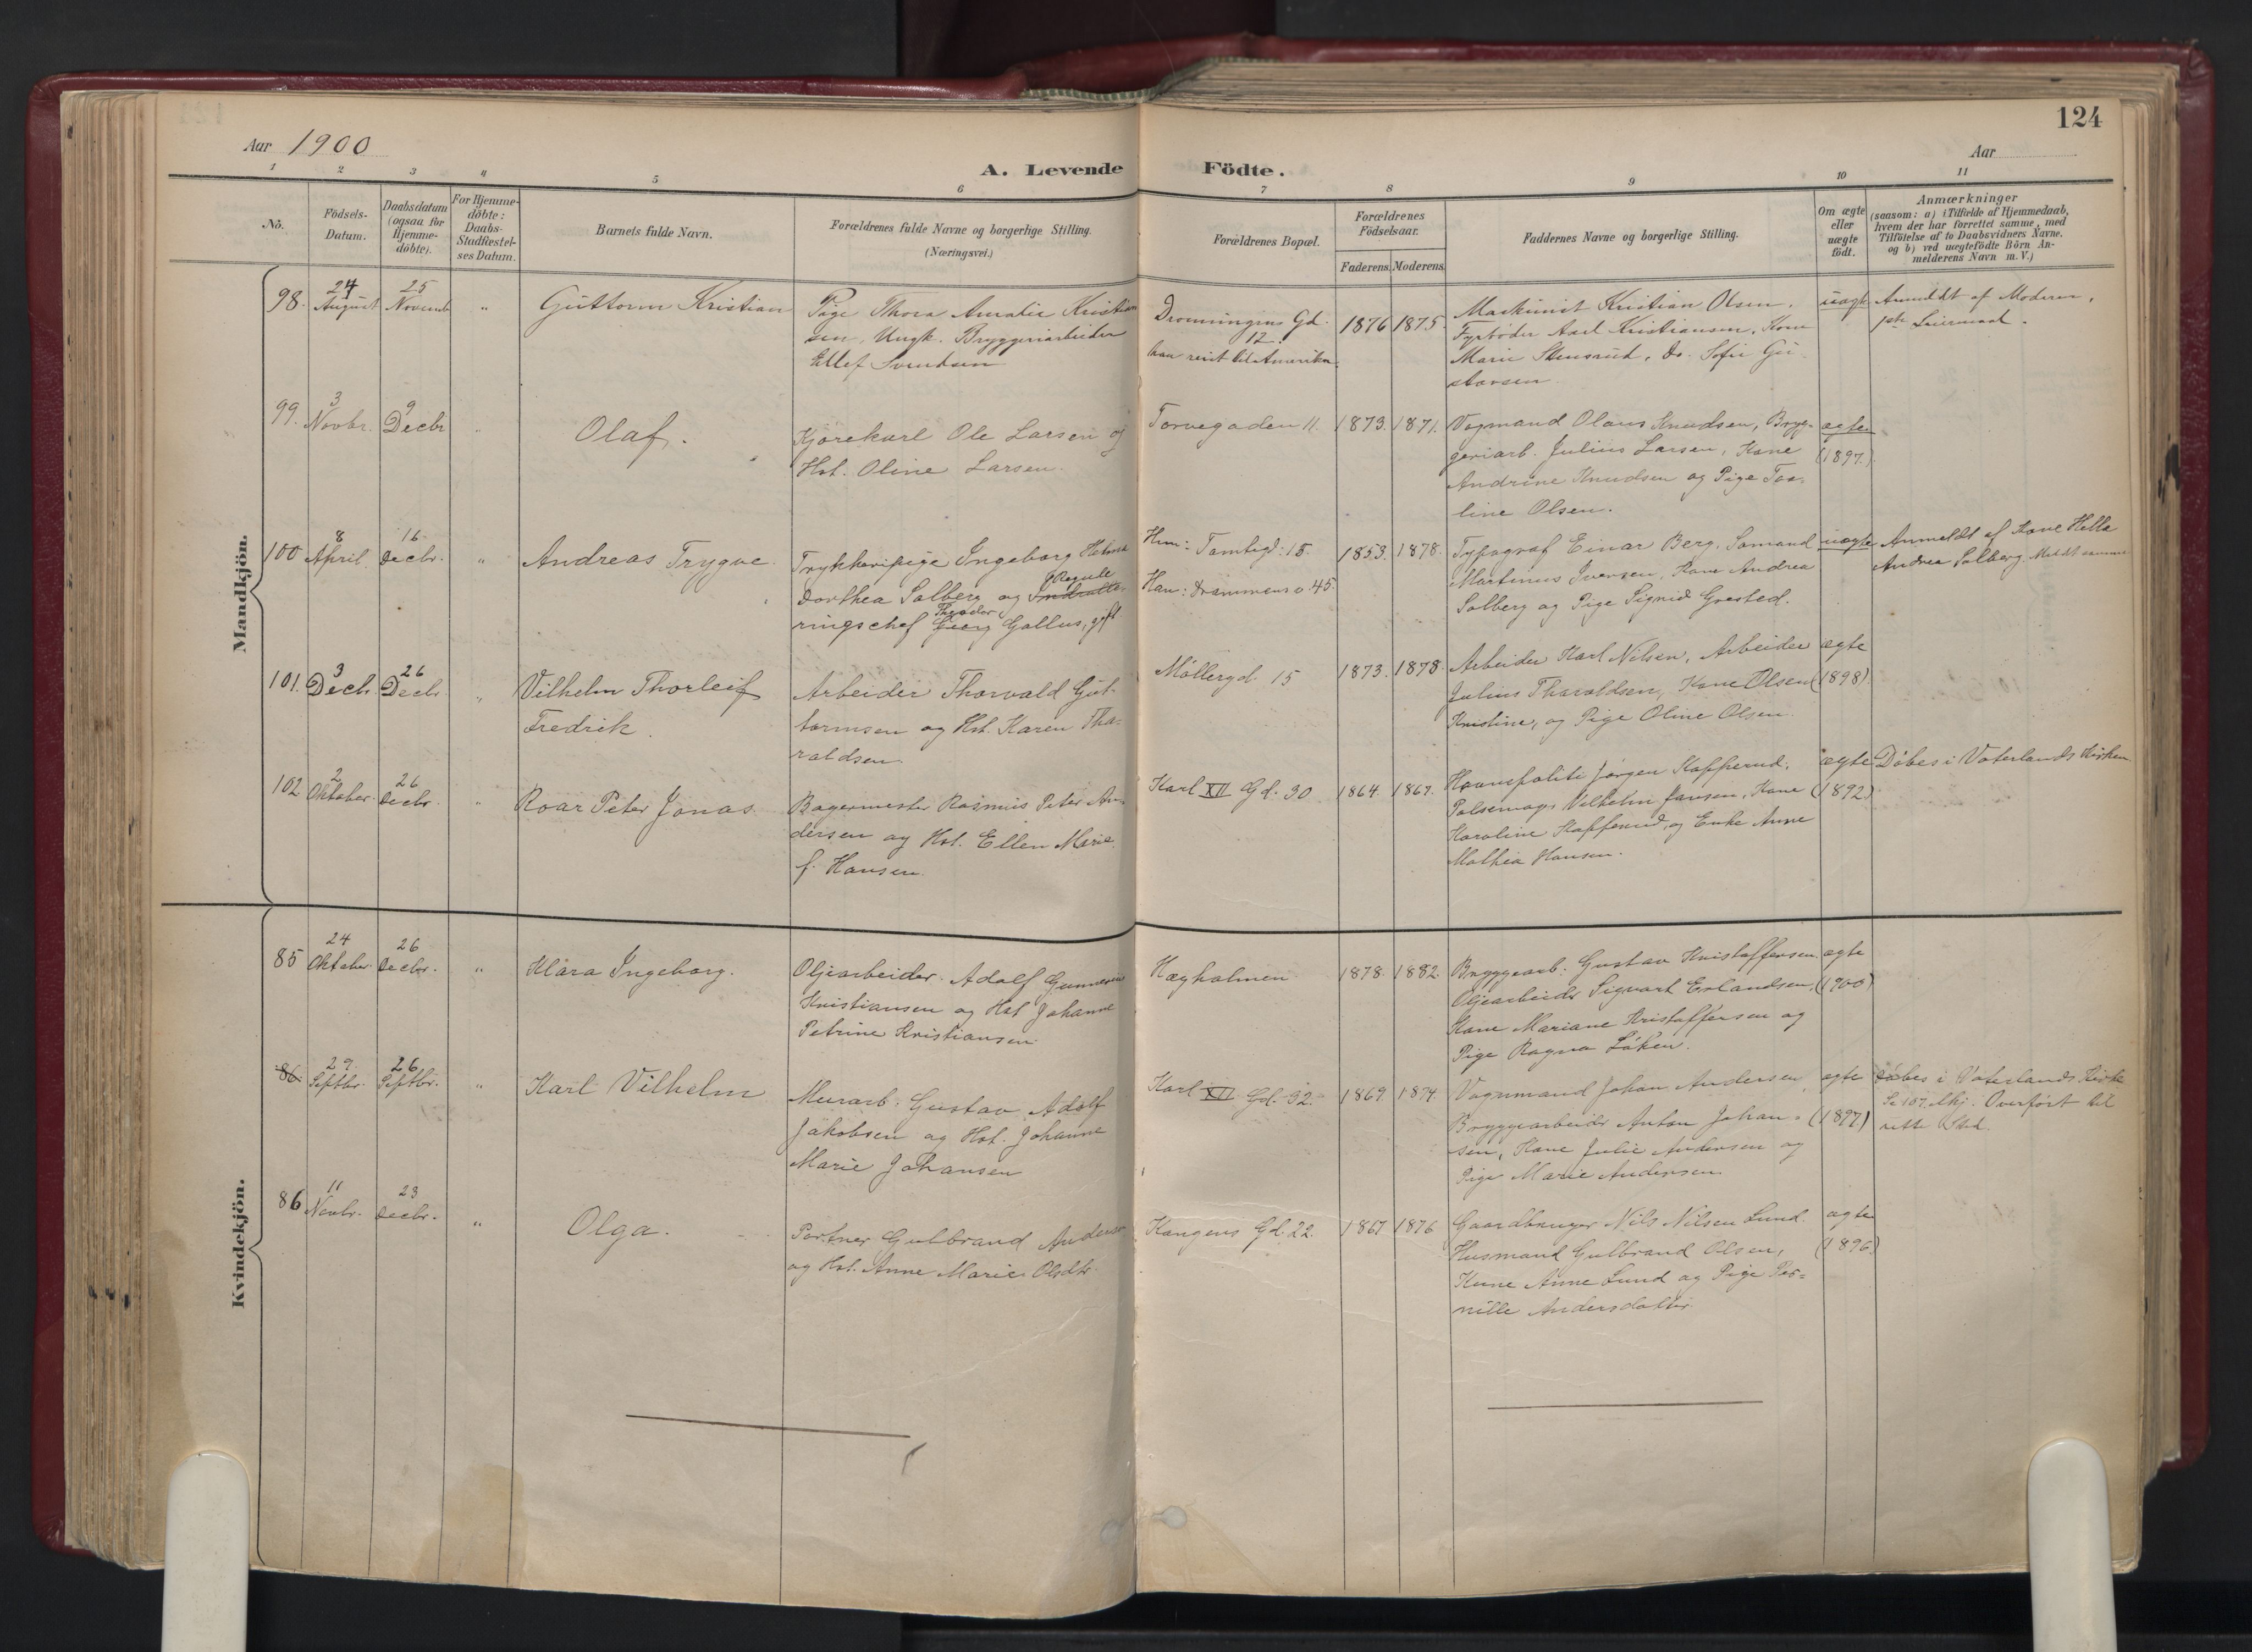 124
Aar 1900
Aar
A. Levende Födte.
1 2 3 4 5 6 7 8 9 10 11
No.
Födsels-
Datum.
Daabsdatum
(ogsaa for
Hjemme-
döbte).
For Hjemme-
döbte:
Daabs-
Stadfæstel-
ses Datum.
Barnets fulde Navn.
Forældrenes fulde Navne og borgerlige Stilling.
(Næringsvei.)
Forældrenes Bopæl.
Forældrenes
Födselsaar.
Faderens. Moderens.
Faddernes Navne og borgerlige Stilling.
Om ægte
eller
uægte
födt.
Anmærkninger
(saasom: a) i Tilfælde af Hjemmedaab,
hvem der har forrettet samme, med
Tilföielse af to Daabsvidners Navne.
og b) ved uægtefödte Börn An-
melderens Navn m. V.)
Mandkjön.
98.
24
August
25
Novemb
"
Guttorm Kristian
Pige Thora Amalie Kristian
sen, Ungk. Bryggeriarbeider
Ellef Svendsen
Dronningens Gd.
12
han reist til Amerika.
1876 1875.
Maskinist Kristian Olsen.
Fyrböder Axel Kristiansen, Kone
Marie Stensrud, do. Sofie Gu-
stavsen
uægte
Anmeldt af Moderen,
1ste Leiermaal.
99.
3
Novbr.
9
Decbr
"
Olaf.
Kjörekarl Ole Larsen og
Hst. Oline Larsen.
Torvegaden 11.
1873. 1871.
Vognmand Olaus Knudsen, Bryg-
geriarb. Julius Larsen, Kone
Andrine Knudsen og Pige
line Olsen.
ægte
(1897.)
100
8
April
16
Decbr.
"
Andreas Trygve.
Trykkeripige Ingeborg Helena
Dorthea Solberg og
Regule
ringschef Georg Gallus, gift.
Theodor
Hun: Tomtegd: 15.
Han: Drammensv 45.
1853. 1878.
Typograf Einar Berg. Sömand
Martinus Iversen, Kone Andrea
Solberg og Pige Sigrid Grested.
uægte
Anmeldt af Kone Hella
Andrea Solberg. Meldt samme
101.
3
Decbr.
26
Decbr.
"
Vilhelm Thorleif
Fredrik.
Arbeider Thorvald Gut-
tormsen og Hst. Karen Tha-
raldsen
Möllergd. 15
1873. 1878.
Arbeider Karl Nilsen, Arbeider
Julius Tharaldsen, Kone Olsen
Kristine, og Pige Oline Olsen.
ægte
(1898).
102
2
Oktober.
26
Decbr.
"
Roar Peter Jonas
Bagermester Rasmus Peter An-
dersen og Hst. Ellen Marie
f. Hansen.
Karl XII Gd. 30
1864. 1867.
Havnepoliti Jörgen Kopperud.
Pölsemager Vilhelm Jansen, Kone
Karoline Kopperud, og Enke Anne
Mathea Hansen.
ægte
(1892)
Döbes i Vaterlands Kirken
Kvindekjön.
85
24
Oktober.
26
Decbr.
"
Klara Ingeborg.
Oljearbeider. Adolf Gunnerius
Kristiansen og Hst Johanne
Petrine Kristiansen
Hægholmen
1878. 1882.
Bryggearb: Gustav Kristoffersen
Oljearbeider Sigvart Erlandsen,
Kone Mariane Kristoffersen og
Pige Ragna Löken.
ægte
(1900)
86.
29.
Septbr.
26
Septbr.
"
Karl Vilhelm
Murarb. Gustav Adolf
Jakobsen og Hst. Johanne
Marie Johansen
Karl XII Gd. 32.
1869. 1874.
Vognmand Johan Andersen,
Bryggearbeider Anton Johan-
sen, Kone Julie Andersen og
Pige Marie Andersen
ægte
(1897)
Döbes i Vaterlands Kirke
Se 107. Mkj. Overfört til
rette Sted.
86
11
Novbr.
23
Decbr.
"
Olga.
Portner Gulbrand Andersen
og Hst. Anne Marie Olsdtr.
Kongens Gd. 22.
1867 1876
Gaardbruger Nils Nilsen Lund.
Husmand Gulbrand Olsen,
Kone Anne Lund og Pige Per-
nille Andersdatter
ægte
(1896.)